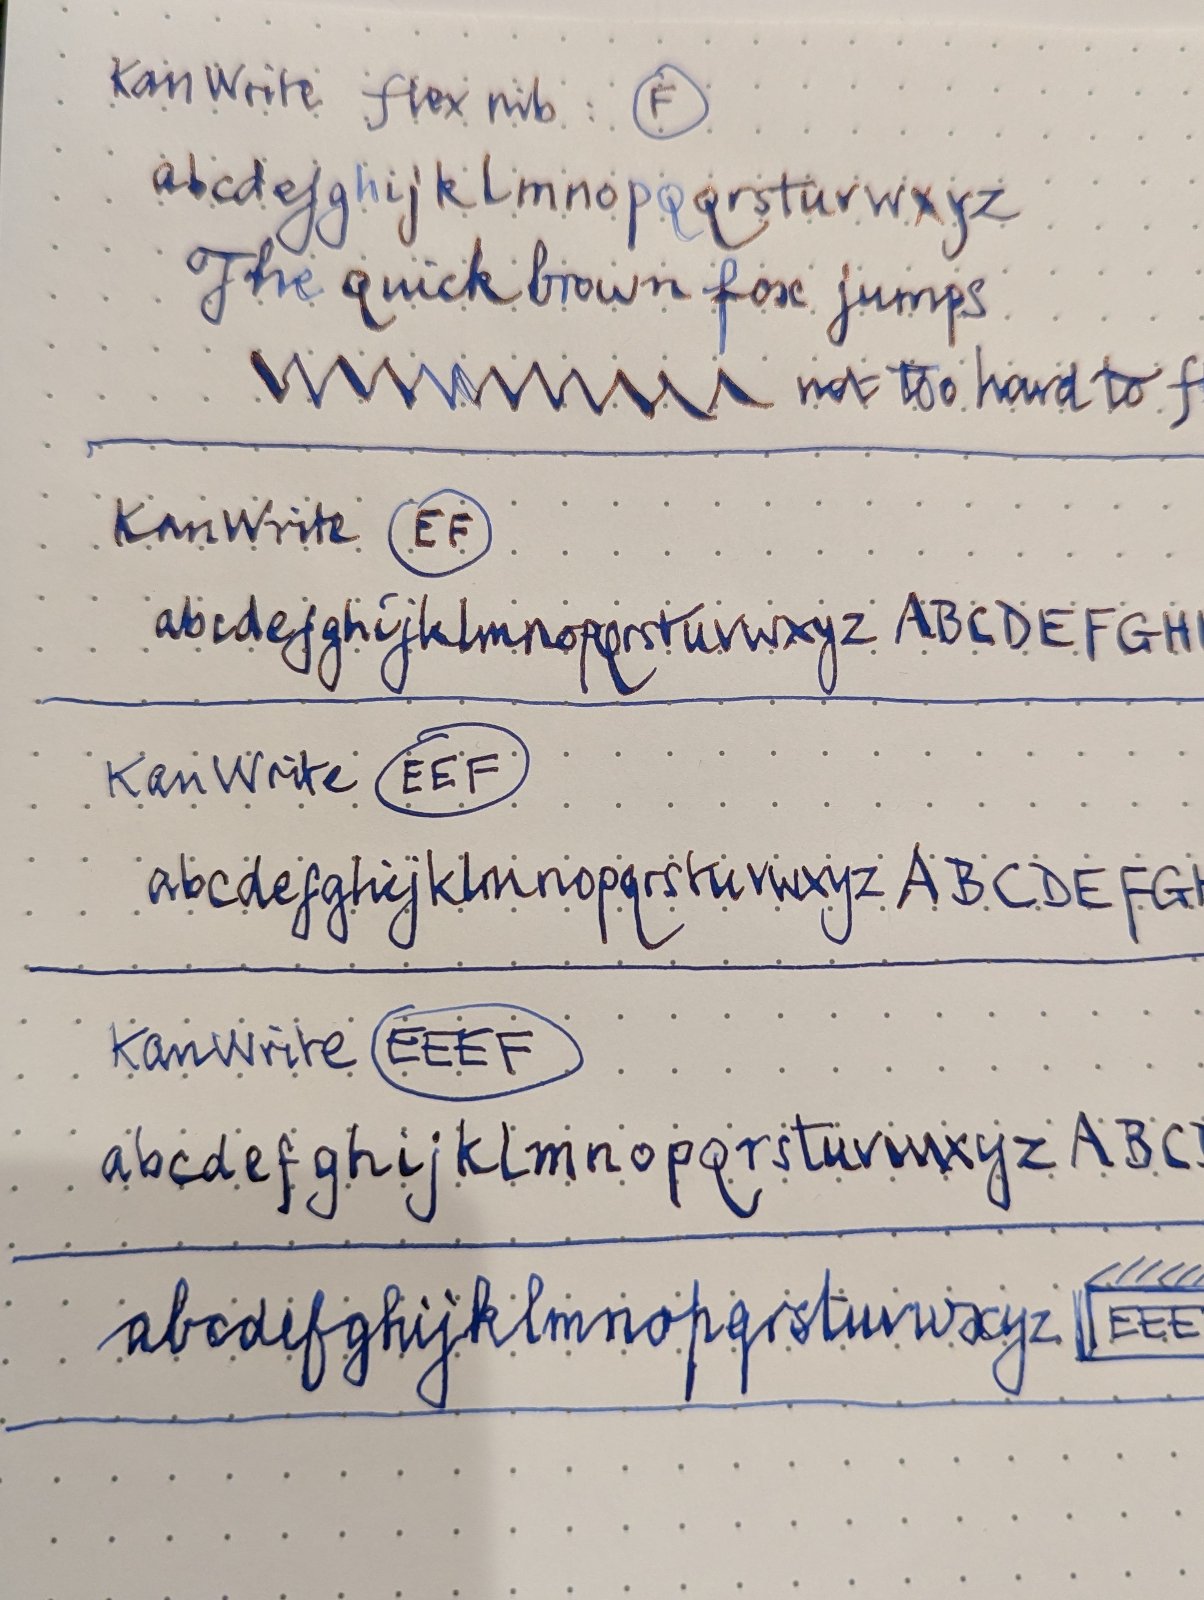 KanWrite flex nib : F
abcdefghijklmnopqqrstuvwxyz
The quick brown fox jumps
not too hard to fl
KanWrite EF
abcdefghijklmnopqrstuvwxyz ABCDEFGH
KanWrite EEF
abcdefghijklmnopqrstuvwxyz ABCDEFG
KanWrite EEEF
abcdefghijklmnopqrstuvwxyz ABC
abcdefghijklmnopqrstuvwxyz EEE